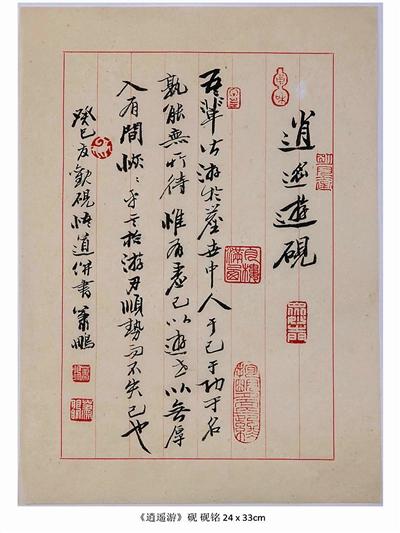 逍遥遊硯
吾輩皆游於塵世中人于己于功于名
孰能無所待惟有虚己以遊世以無厚
入有間恢〻乎其於游刃順勢而不失己也
癸巳友歡硯悟道併書 蕭鵬
《逍遥游》 砚 砚铭 24 x 33cm